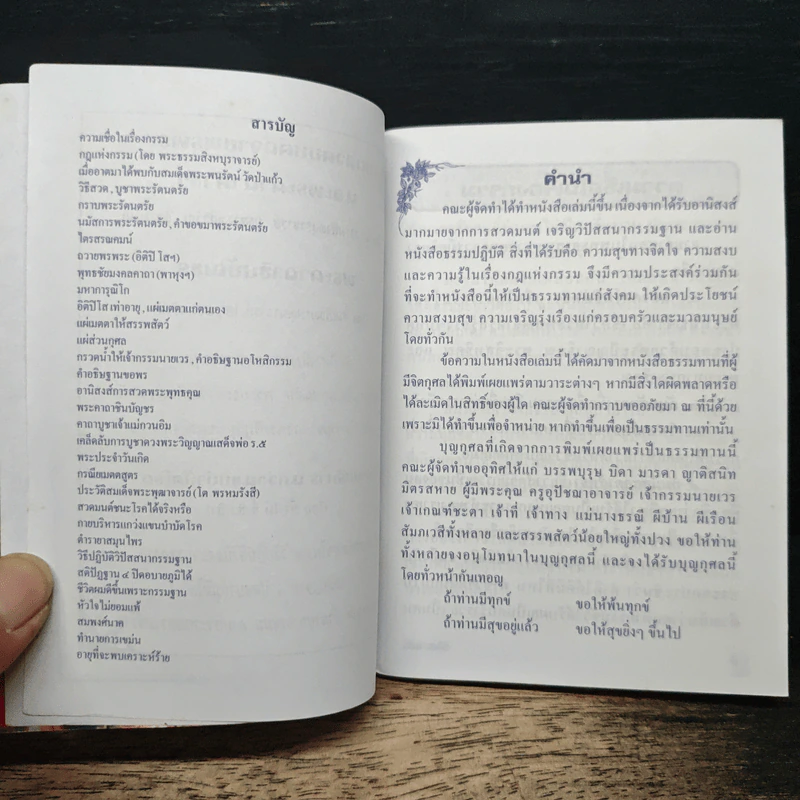 สารบัญ
ความเชื่อในเรื่องกรรม
กฎแห่งกรรม (โดย พระธรรมสิงหบุราจารย์)
เมื่ออาตมาได้พบกับสมเด็จพระพนรัตน์ วัดป่าแก้ว
วิธีสวด, บูชาพระรัตนตรัย
กราบพระรัตนตรัย
นมัสการพระรัตนตรัย, คำขอขมาพระรัตนตรัย
ไตรสรณคมน์
ถวายพรพระ (อิติปิ โสฯ)
พุทธชัยมงคลคาถา (พาหุงฯ)
มหาการุณิโก
อิติปิโส เท่าอายุ, แผ่เมตตาแก่ตนเอง
แผ่เมตตาให้สรรพสัตว์
แผ่ส่วนกุศล
กรวดน้ำให้เจ้ากรรมนายเวร, คำอธิษฐานอโหสิกรรม
คำอธิษฐานขอพร
อานิสงส์การสวดพระพุทธคุณ
พระคาถาชินบัญชร
คาถาบูชาเจ้าแม่กวนอิม
เคล็ดลับการบูชาดวงพระวิญญาณเสด็จพ่อ ร.๕
พระประจำวันเกิด
กรณียเมตตสูตร
ประวัติสมเด็จพระพุฒาจารย์ (โต พรหมรังสี)
สวดมนต์ชนะโรคได้จริงหรือ
กายบริหารแกว่งแขนบำบัดโรค
ตำรายาสมุนไพร
วิธีปฏิบัติวิปัสสนากรรมฐาน
สติปัฏฐาน ๔ ปิดอบายภูมิได้
ชีวิตผมดีขึ้นเพราะกรรมฐาน
หัวใจไม่ยอมแพ้
สมพงศ์นาค
ทำนายการเขม่น
อายุที่จะพบเคราะห์ร้าย
คำนำ
คณะผู้จัดทำได้ทำหนังสือเล่มนี้ขึ้น เนื่องจากได้รับอานิสงส์
มากมายจากการสวดมนต์ เจริญวิปัสสนากรรมฐาน และอ่าน
หนังสือธรรมปฏิบัติ สิ่งที่ได้รับคือ ความสุขทางจิตใจ ความสงบ
และความรู้ในเรื่องกฎแห่งกรรม จึงมีความประสงค์ร่วมกัน
ที่จะทำหนังสือนี้ให้เป็นธรรมทานแก่สังคม ให้เกิดประโยชน์
ความสงบสุข ความเจริญรุ่งเรืองแก่ครอบครัวและมวลมนุษย์
โดยทั่วกัน
ข้อความในหนังสือเล่มนี้ ได้คัดมาจากหนังสือธรรมทานที่ผู้
มีจิตกุศลได้พิมพ์เผยแพร่ตามวาระต่างๆ หากมีสิ่งใดผิดพลาดหรือ
ได้ละเมิดในสิทธิ์ของผู้ใด คณะผู้จัดทำกราบขออภัยมา ณ ที่นี้ด้วย
เพราะมิได้ทำขึ้นเพื่อจำหน่าย หากทำขึ้นเพื่อเป็นธรรมทานเท่านั้น
บุญกุศลที่เกิดจากการพิมพ์เผยแพร่เป็นธรรมทานนี้
คณะผู้จัดทำขออุทิศให้แก่ บรรพบุรุษ บิดา มารดา ญาติสนิท
มิตรสหาย ผู้มีพระคุณ ครูอุปัชฌาอาจารย์ เจ้ากรรมนายเวร
เจ้าเกณฑ์ชะตา เจ้าที่ เจ้าทาง แม่นางธรณี ผีบ้าน ผีเรือน
สัมภเวสีทั้งหลาย และสรรพสัตว์น้อยใหญ่ทั้งปวง ขอให้ท่าน
ทั้งหลายจงอนุโมทนาในบุญกุศลนี้ และจงได้รับบุญกุศลนี้
โดยทั่วหน้ากันเทอญ
ถ้าท่านมีทุกข์ ขอให้พ้นทุกข์
ถ้าท่านมีสุขอยู่แล้ว ขอให้สุขยิ่งๆ ขึ้นไป